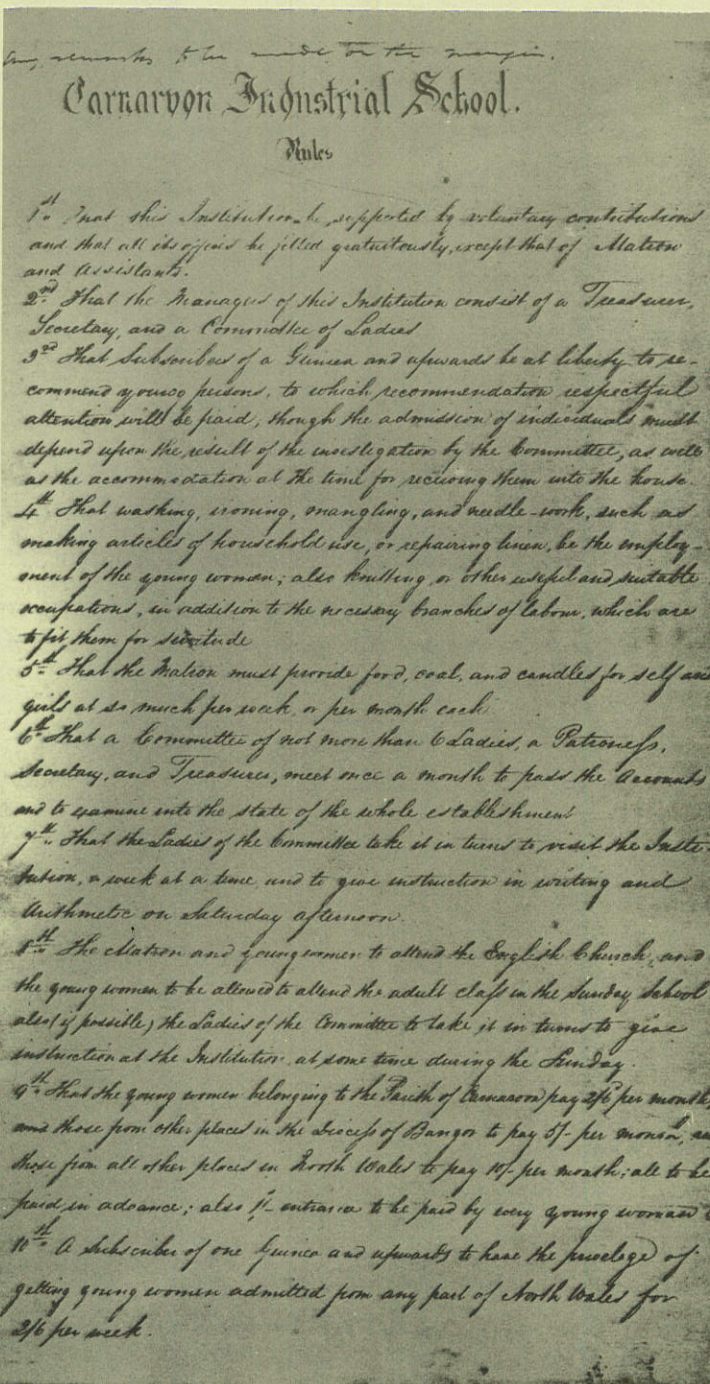 Any remarks to be made on the margin.
Carnarvon Industrial School.
Rules
1st. That this Institution be supported by voluntary contributions
and that all its offices be filled gratuitously, except that of Matron
and Assistants.
2nd. That the Managers of this Institution consist of a Treasurer,
Secretary, and a Committee of Ladies
3rd That Subscribers of a Guinea and upwards be at liberty to re-
commend young persons, to which recommendation respectful
attention will be paid, though the admission of individuals must
depend upon the result of the investigation by the Committee, as well
as the accommodation at the time for receiving them into the house.
4th That washing, ironing, mangling, and needle-work, such as
making articles of household use, or repairing linen, be the employ-
ment of the young women; also knitting, or other useful and suitable
occupations, in addition to the necessary branches of labour, which are
to fit them for servitude
5th. That the Matron must provide food, coal, and candles for self and
girls at so much per week, or per month each
6th That a Committee of not more than 6 Ladies, a Patroness,
Secretary, and Treasurer, meet once a month to pass the Accounts
and to examine into the state of the whole establishment
7th. That the Ladies of the Committee take it in turns to visit the Insti-
tution, a week at a time, and to give instruction in writing and
Arithmetic on Saturday afternoon.
8th. The Matron and young women to attend the English Church, and
the young women to be allowed to attend the adult class in the Sunday School
also (if possible) the Ladies of the Committee to take it in turns to give
instruction at the Institution at some time during the Sunday.
9th. That the young women belonging to the Parish of Carnarvon pay 2/6 per month,
and those from other places in the Diocess of Bangor to pay 5/- per month,
those from all other places in North Wales to pay 10/- per month; all to be
paid in advance; also 1/- entrance to be paid by every young woman
10th. A Subscriber of one Guinea and upwards to have the privilege of
getting young women admitted from any part of North Wales for
2/6 per week.